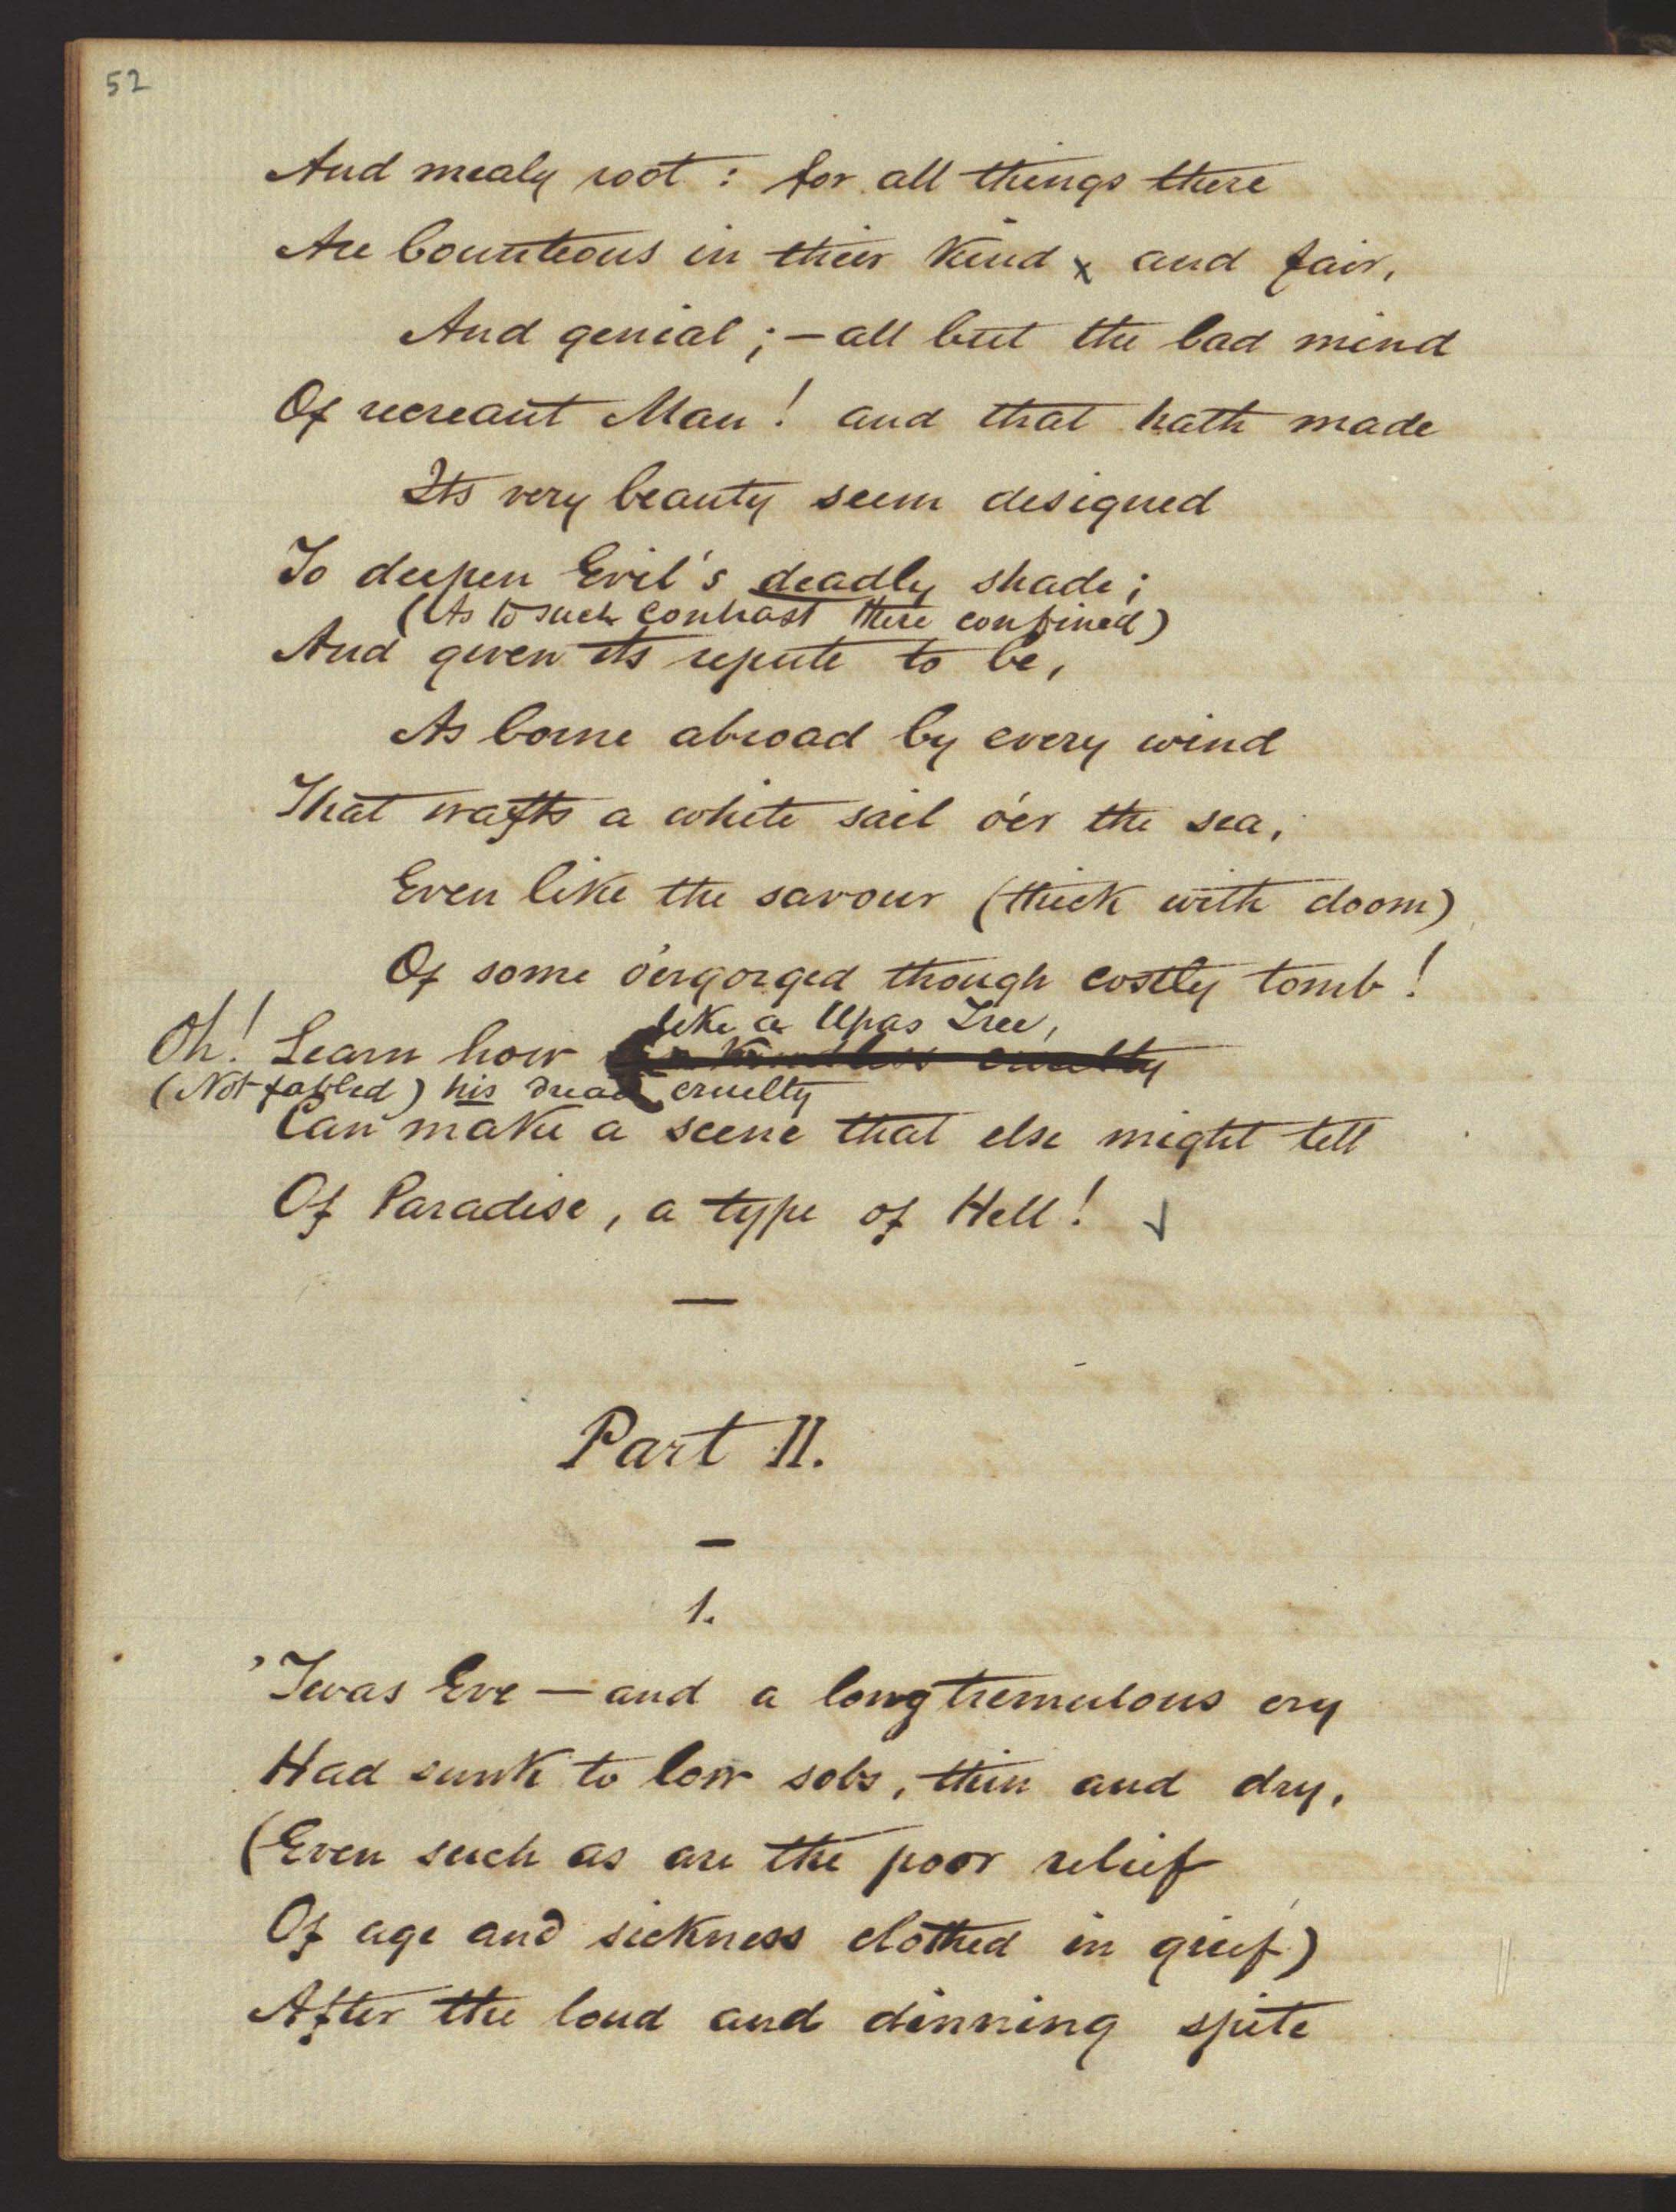 52
And mealy root : for all things there
Are bounteous in their kind x and fair,
And genial ; — all but the bad mind
Of recreant Man ! and that hath made
Its very beauty seem designed
To deepen Evil's deadly shade ;
(As to such contrast there confined)
And given its repute to be,
As borne abroad by every wind
That wafts a white sail o'er the sea,
Even like the savour (thick with doom)
Of some o'ergorged though costly tomb !
like a Upas Tree,
Oh! Learn how cruelty
(Not fabled) his dread cruelty
Can make a scene that else might tell
Of Paradise, a type of Hell !
—
Part II.
—
1.
'Twas Eve — and a long tremulous cry
Had sunk to low sobs, thin and dry,
(Even such as are the poor relief
Of age and sickness clothed in grief)
After the loud and dinning spite